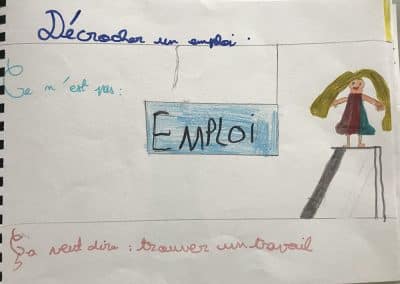 Décrocher un emploi :
Ce n'est pas :
EMPLOi
Ça veut dire : trouver un travail